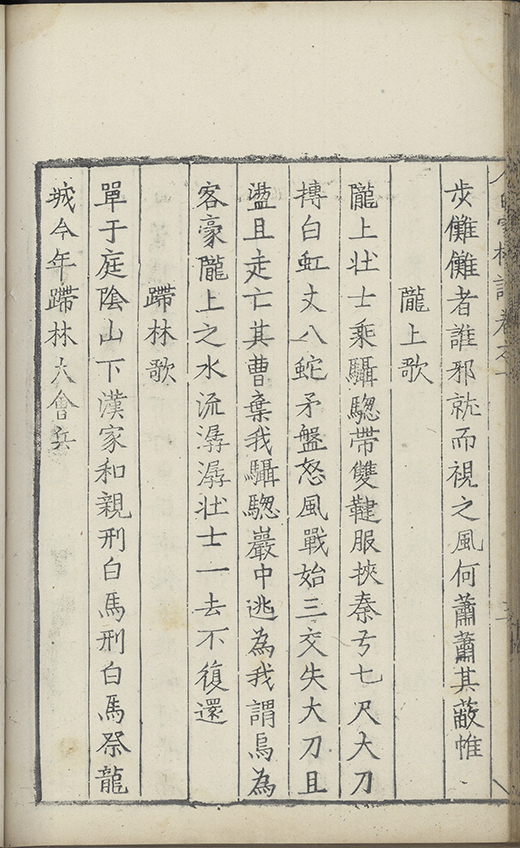 詩卷之
步儺儺者誰邪就而視之風何蕭蕭其蔽帷
隴上歌
隴上壯士乘䯀騘帶雙鞬服挾秦弓七尺大刀
摶白虹丈八蛇矛盤怒風戰始三交失大刀且
盪且走亡其曹棄我䯀騘巖中逃為我謂烏為
客豪隴上之水流潺潺壯士一去不復還
蹛林歌
單于庭陰山下漢家和親刑白馬刑白馬祭龍
城今年蹛林大會兵